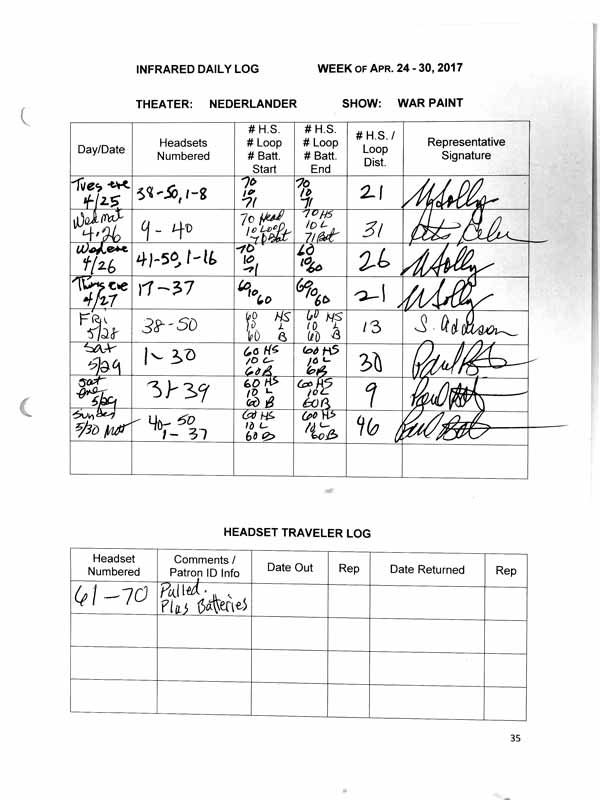 INFRARED DAILY LOG WEEK OF APR. 24 - 30, 2017
THEATER: NEDERLANDER SHOW: WAR PAINT
Day/Date Headsets Numbered # H.S. # Loop # Batt. Start # H.S. # Loop # Batt. End # H.S. / Loop Dist. Representative Signature
Tues eve 4/25 38-50, 1-8 70 10 71 70 10 71 21
Wed mat 4-26 9-40 70 Head 10 Loop 70 Bat 70 HS 10 L 71 Bat 31
Wed eve 4/26 41-50, 1-16 70 10 71 60 10 60 26
Thurs eve 4/27 17-37 60 10 60 60 10 60 21
Fri 5/28 38-50 60 HS 10 L 60 B 60 HS 10 L 60 B 13 S. Addison
Sat 5/29 1-30 60 HS 10 L 60 B 60 HS 10 L 6B 30
Sat eve 5/29 31-39 60 HS 10 L 60 B 60 HS 10 L 60 B 9
Sunday 5/30 Mat 40-50 1-37 60 HS 10 L 60 B 60 HS 10 L 60 B 46
HEADSET TRAVELER LOG
Headset Numbered Comments / Patron ID Info Date Out Rep Date Returned Rep
61-70 Pulled. Plus Batteries
35